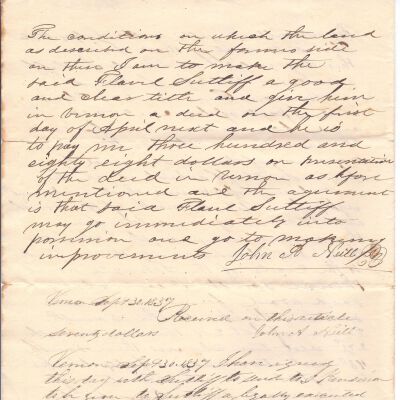 The conditions on which the land
as described on the former side
on then I am to make the
said Flaul Sutliff a good
and clear title and give him
in Vernon a deed on the first
day of April next and he is
to pay me three hundred and
eighty eight dollars on presentation
of the deed in Vernon as before
mentioned and the agreement
is that said Flaul Sutliff
may go immediately into
possession and go to making
improvements John A Hutt
Vernon Sept 30. 1837
Received on this
seventy dollars John A Hutt
Vernon Sept 30. 1837 I have
this day with Sutliff to
to Sutliff a legally executed